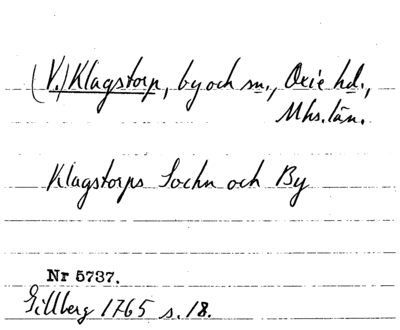 (V.) Klagstorp, by och sn., Oxie hd.,
Mhs. län.
Klagstorps Sochn och By
Nr 5737.
Gillberg 1765 s. 18.